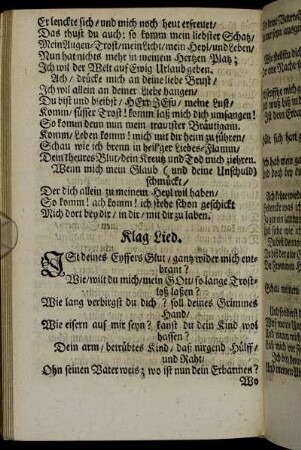 Er lenckte sich / und mich noch heut erfreuet /
Das thust du auch: so komm mein liebster Schatz /
Mein Augen / Trost / mein Licht / mein Heyl und Leben /
Nun hat nichts mehr in meinem Hertzen Platz;
Ich wil der Welt auf Ewig Urlaub geben.
Ach / drücke mich an deine liebe Brust /
Ich wil allein an deiner Liebe hangen /
Du bist und bleibst / HErr JEsu / meine Lust /
Komm / süsser Trost! komm laß mich dich umfangen!
So komm denn nun mein trautster Bräutigam.
Komm / Leben komm! mich mit dir heim zu führen /
Schau wie ich brenn in heil'ger Liebes-Flamm /
Dein theures Blut / dein Kreutz und Tod mich ziehren.
Wenn mich mein Glaub (und deine Unschuld)
schmückt /
Der dich allein zu meinem Heyl wil haben /
So komm! ach komm! ich stehe schon geschickt
Mich dort bey dir / in dir / mit dir zu laben.
Klag Lied.
ISt deines Eyffers Glut / gantz wider mich ent-
brant?
Wie / wilt du mich / mein GOtt / so lange Trost-
loß laßen?
Wie lang verbirgst du dich? soll deines Grimmes
Hand /
Wie eisern auf mir seyn? kanst du dein Kind wol
hassen?
Dein arm / betrübtes Kind / daß nirgend Hülff /
und Raht /
Ohn seinen Vater weis; wo ist nun dein Erbarmen?
Wo